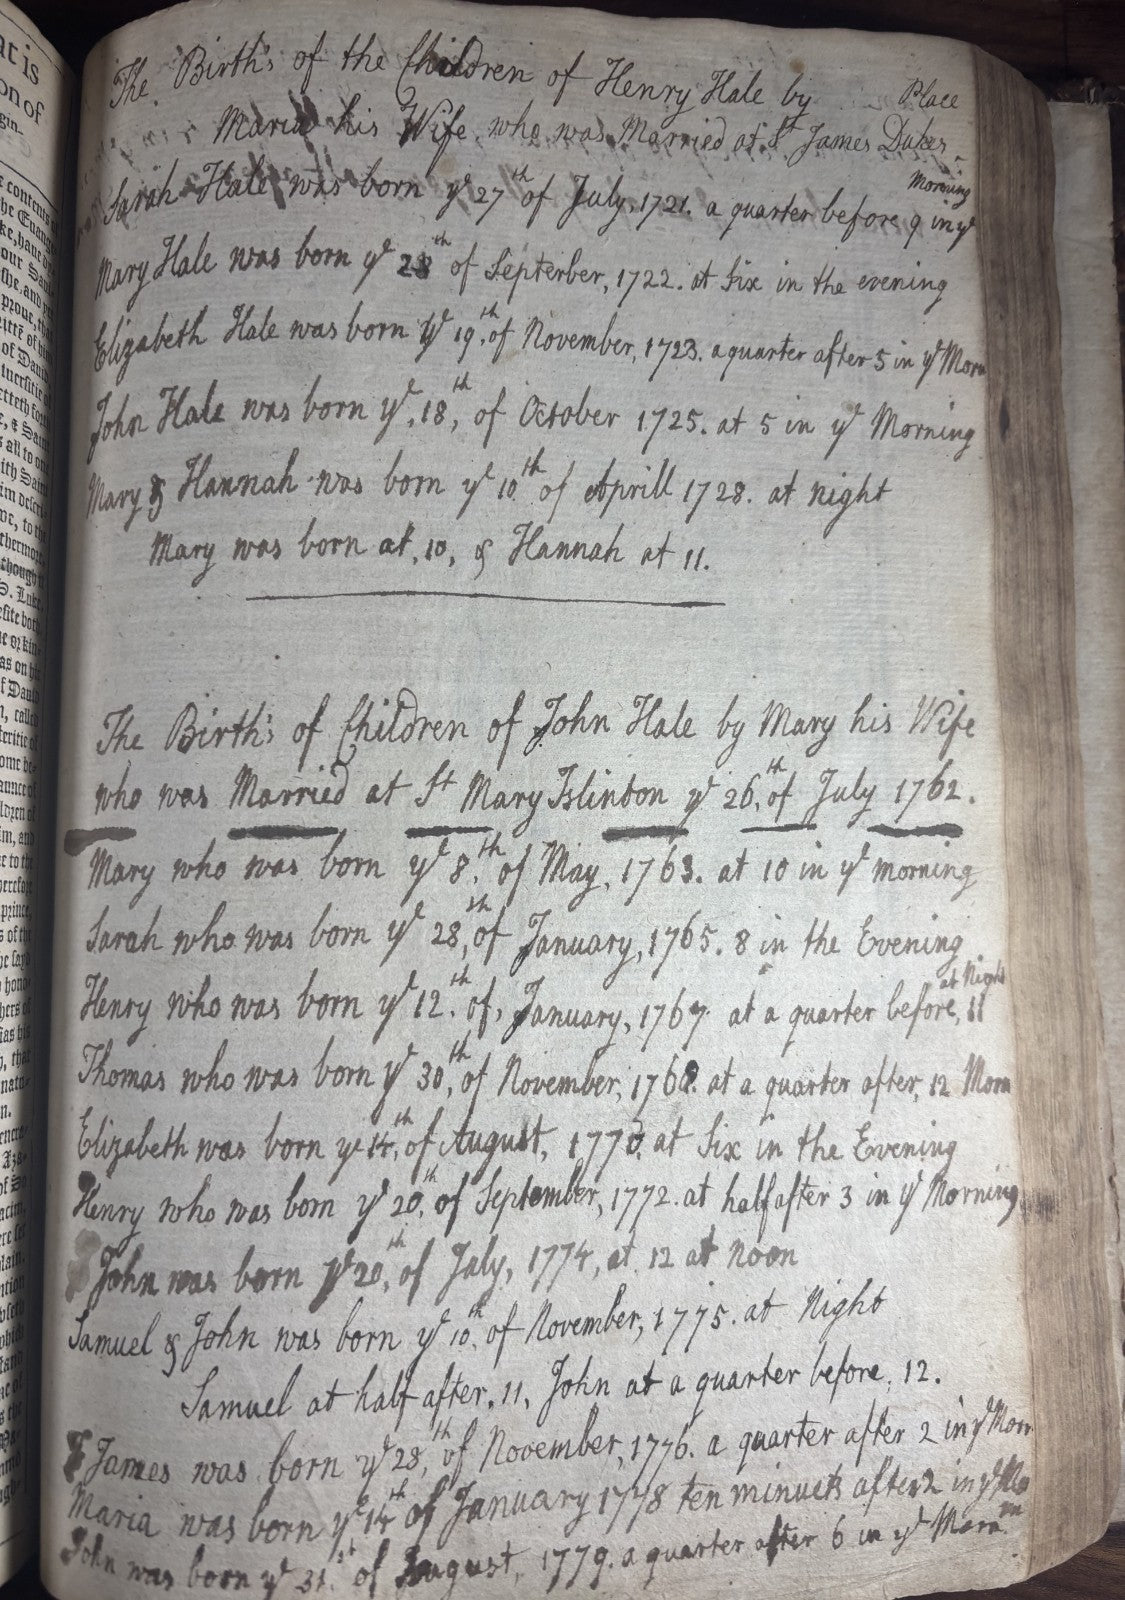 The Births of the Children of Henry Hale by
Maria his Wife who was Married at St James Dukes Place
Sarah Hale was born ye 27th of July, 1721. a quarter before 9 in ye Morning
Mary Hale was born ye 28th of Septerber, 1722. at Six in the evening
Elizabeth Hale was born ye 19th of November, 1723. a quarter after 5 in ye Morn
John Hale was born ye 18th, of October 1725. at 5 in ye Morning
Mary & Hannah was born ye 10th of Aprill 1728. at night
Mary was born at, 10, & Hannah at 11.
The Births of Children of John Hale by Mary his Wife
who was Married at St Mary Islinton ye 26th of July 1762.
Mary who was born ye 8th of May, 1763. at 10 in ye morning
Sarah who was born ye 28th, of January, 1765. 8 in the Evening
Henry who was born ye 12th of, January, 1767 at a quarter before, 11 at Night
Thomas who was born ye 30th, of November, 1768. at a quarter after, 12 Morn
Elizabeth was born ye 14th, of August, 1770, at Six in the Evening
Henry who was born ye 20th, of September, 1772. at half after 3 in ye Morning
John was born ye 20th, of July, 1774, at 12 at noon
Samuel & John was born ye 10th of November, 1775. at Night
Samuel at half after, 11, John at a quarter before, 12.
James was born ye 28th, of November, 1776. a quarter after 2 in ye Morn
Maria was born ye 14th of January 1778 ten minuets after 2 in ye Morn
John was born ye 31st of August, 1779. a quarter after 6 in ye Morn